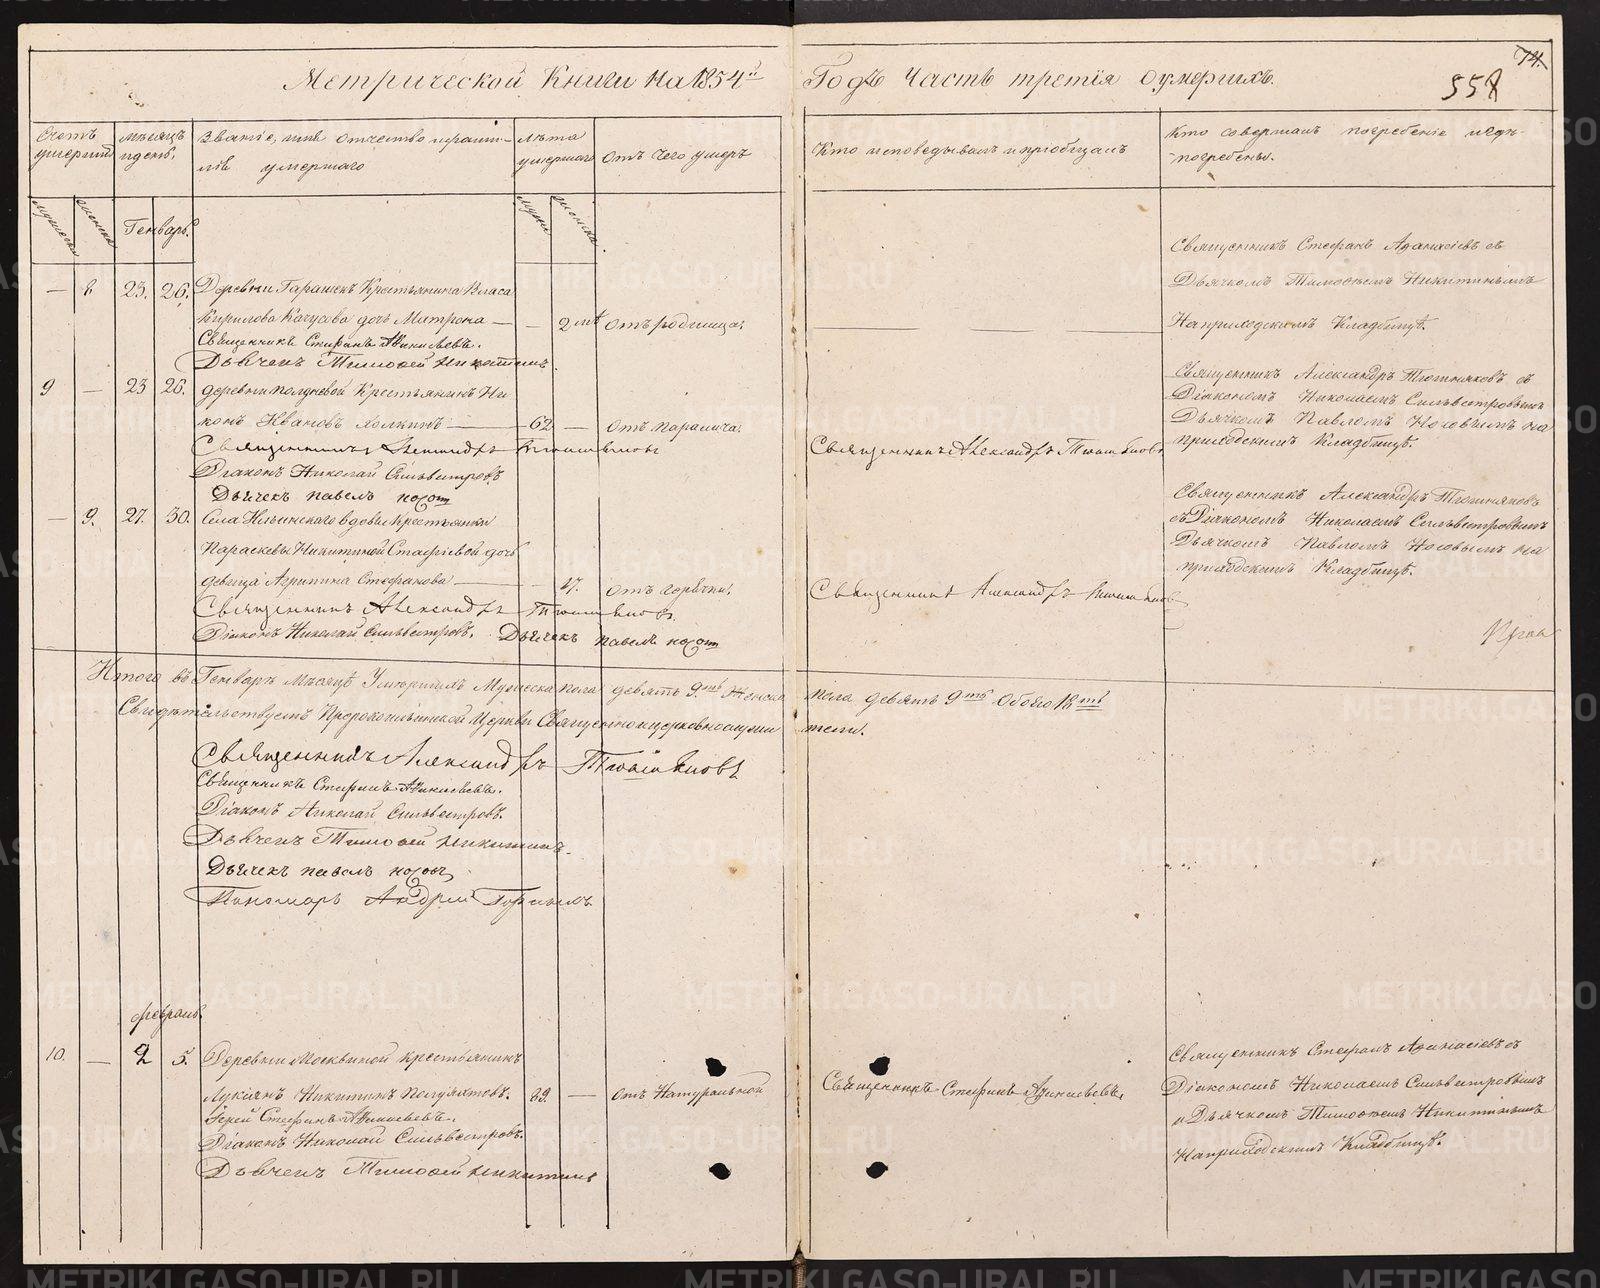 Метрической Книги на 1854й
Годъ Часть третїя о умершихъ.
74.
558
Счетъ умершихъ
Мѣсяцъ и день.
Званїе, имя отчество и фамилїя умершаго
Лѣта умершаго
Отъ чего умеръ
Кто исповедывалъ и прїобщалъ
Кто совершалъ погребенїе и гдѣ погребены.
Мужеска
женска
Генварь.
Мужск
женска
— 8 23. 26. Деревни Гарашекъ Крестьянина Власа
Кирилова дочь Матрона — — 2 лѣтъ Отъ родимца.
Священникъ Стефанъ Афанасьевъ.
Дьячекъ Тимофей Никитинъ.
Священникъ Стефанъ Афанасїевъ съ
Дьячкомъ Тимофеемъ Никитинымъ
На приходскомъ Кладбищѣ.
9 — 23 26. деревни Полдневой Крестьянинъ Ни
конъ Ивановъ Холкинъ — 62 — Отъ паралича.
Священникъ Александръ
Дїаконъ Николай Сильвестровъ
Дьячекъ павелъ носовъ
Священникъ Александръ
Священникъ Александръ съ
Дїакономъ Николаемъ Сильвестровымъ
Дьячкомъ Павломъ Носовымъ на
приходскомъ Кладбищѣ.
— 9. 27. 30. Села Ильинскаго вдовы Крестьянки
Параскевы Никитиной дочь
девица Агрипина Стефанова — — 17. отъ горячки.
Священникъ Александръ
Дїаконъ Николай Сильвестровъ. Дьячекъ павелъ носовъ
Священникъ Александръ
Священникъ Александръ
съ Дїакономъ Николаемъ Сильвестровымъ
Дьячкомъ Павломъ Носовымъ на
приходскомъ Кладбищѣ.
Итого въ Генварѣ Мѣсяцѣ Умершихъ Мужеска пола девять 9ть Женска пола девять 9ть Обоего 18ть
Свидѣтельствуемъ Пророкоильинской Церкви Священноцерковнослужи тели.
Священникъ Александръ
Священникъ Стефанъ Афанасьевъ.
Дїаконъ Николай Сильвестровъ.
Дьячекъ Тимофей Никитинъ.
Дьячекъ павелъ носовъ
Пономарь Андрей
февраль.
10. — 2 5. Деревни Москвиной крестьянинъ
Лукїянъ Никитинъ Полуяхтовъ. 89. — отъ Натуральной
Їерей Стефанъ Афанасьевъ.
Дїаконъ Николай Сильвестровъ.
Дьячекъ Тимофей Никитинъ
Священникъ Стефанъ Афанасьевъ.
Священникъ Стефанъ Афанасїевъ съ
Дїакономъ Николаемъ Сильвестровымъ
и Дьячкомъ Тимофеемъ Никитинымъ
На приходскомъ Кладбищѣ.
METRIKI.GASO-URAL.RU